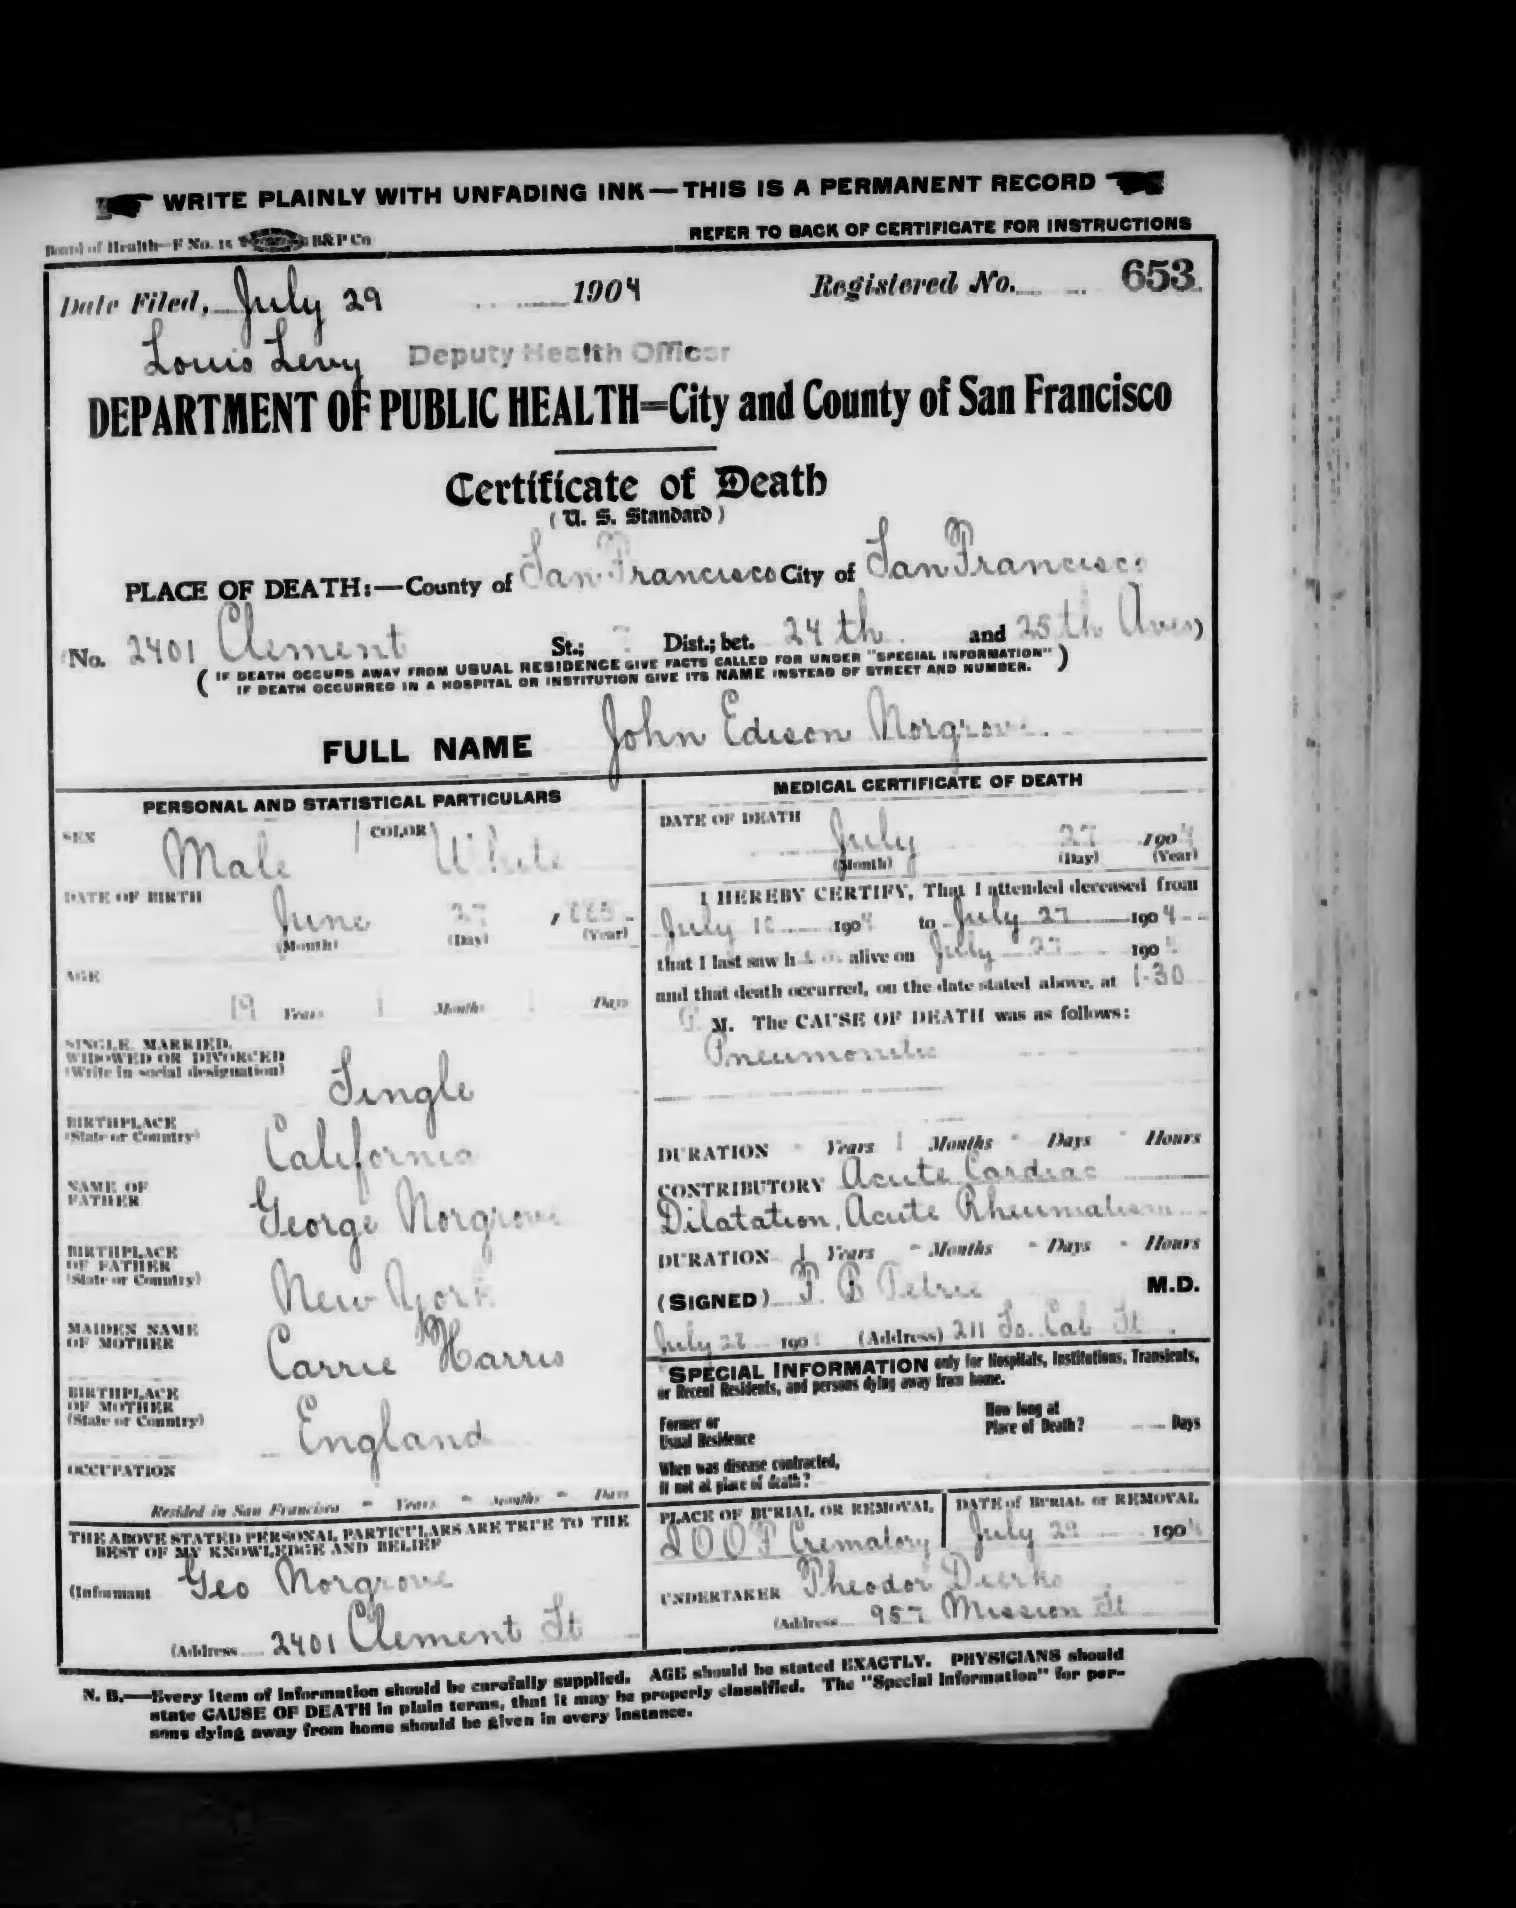 WRITE PLAINLY WITH UNFADING INK—THIS IS A PERMANENT RECORD
Board of Health—F No. 15 B&P Co
REFER TO BACK OF CERTIFICATE FOR INSTRUCTIONS
Date Filed, July 29 1904 Registered No. 653
Louis Levy Deputy Health Officer
DEPARTMENT OF PUBLIC HEALTH=City and County of San Francisco
Certificate of Death
(U. S. Standard)
PLACE OF DEATH:—County of San Francisco City of San Francisco
No. 2401 Clement St.; Dist.; bet. 24th and 25th Aves)
(IF DEATH OCCURS AWAY FROM USUAL RESIDENCE GIVE FACTS CALLED FOR UNDER "SPECIAL INFORMATION"
IF DEATH OCCURRED IN A HOSPITAL OR INSTITUTION GIVE ITS NAME INSTEAD OF STREET AND NUMBER.)
FULL NAME John Edison Norgrove
PERSONAL AND STATISTICAL PARTICULARS
SEX Male COLOR White
DATE OF BIRTH
June 27, 1885
(Month) (Day) (Year)
AGE
19 Years 1 Months Days
SINGLE, MARRIED,
WIDOWED OR DIVORCED
(Write in social designation) Single
BIRTHPLACE
(State or Country) California
NAME OF
FATHER George Norgrove
BIRTHPLACE
OF FATHER
(State or Country) New York
MAIDEN NAME
OF MOTHER Carrie Harris
BIRTHPLACE
OF MOTHER
(State or Country) England
OCCUPATION
Resided in San Francisco - Years - Months - Days
THE ABOVE STATED PERSONAL PARTICULARS ARE TRUE TO THE
BEST OF MY KNOWLEDGE AND BELIEF
(Informant Geo Norgrove
(Address 2401 Clement St
MEDICAL CERTIFICATE OF DEATH
DATE OF DEATH
July 27 1904
(Month) (Day) (Year)
I HEREBY CERTIFY, That I attended deceased from
July 1904 to July 27 1904
that I last saw h alive on July 27 190
and that death occurred, on the date stated above, at 1-30
M. The CAUSE OF DEATH was as follows:
Pneumonitis
DURATION - Years 1 Months - Days - Hours
CONTRIBUTORY Acute Cardiac
Dilatation, Acute Rheumatism
DURATION 1 Years - Months - Days - Hours
(SIGNED) F. B Petrie M.D.
July 28 190 (Address) 211 So. Cal St
SPECIAL INFORMATION only for Hospitals, Institutions, Transients,
or Recent Residents, and persons dying away from home.
Former or
Usual Residence
How long at
Place of Death? Days
When was disease contracted,
If not at place of death?
PLACE OF BURIAL OR REMOVAL
I O O F Crematory
DATE of BURIAL or REMOVAL
July 29 190
UNDERTAKER Theodor Dierks
(Address 957 Mission St
N. B.—Every item of information should be carefully supplied. AGE should be stated EXACTLY. PHYSICIANS should
state CAUSE OF DEATH in plain terms, that it may be properly classified. The "Special Information" for per-
sons dying away from home should be given in every instance.